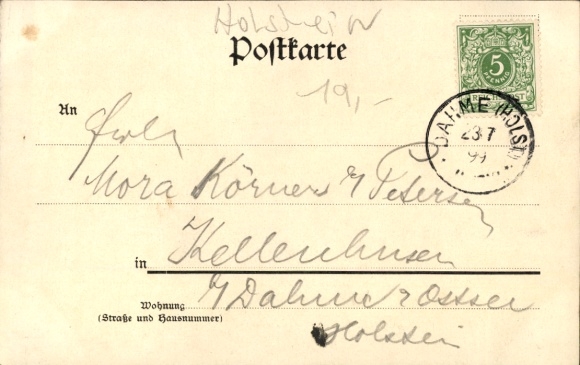 Holstein
Postkarte
5
PFENNIG
REICHSPOST
19,-
DAHME (HOLST)
23 7
99
An
Mora Körner b/ Petersen
in Kellenhusen
b/ Dahme Ostsee
Wohnung
(Straße und Hausnummer)
Holstein